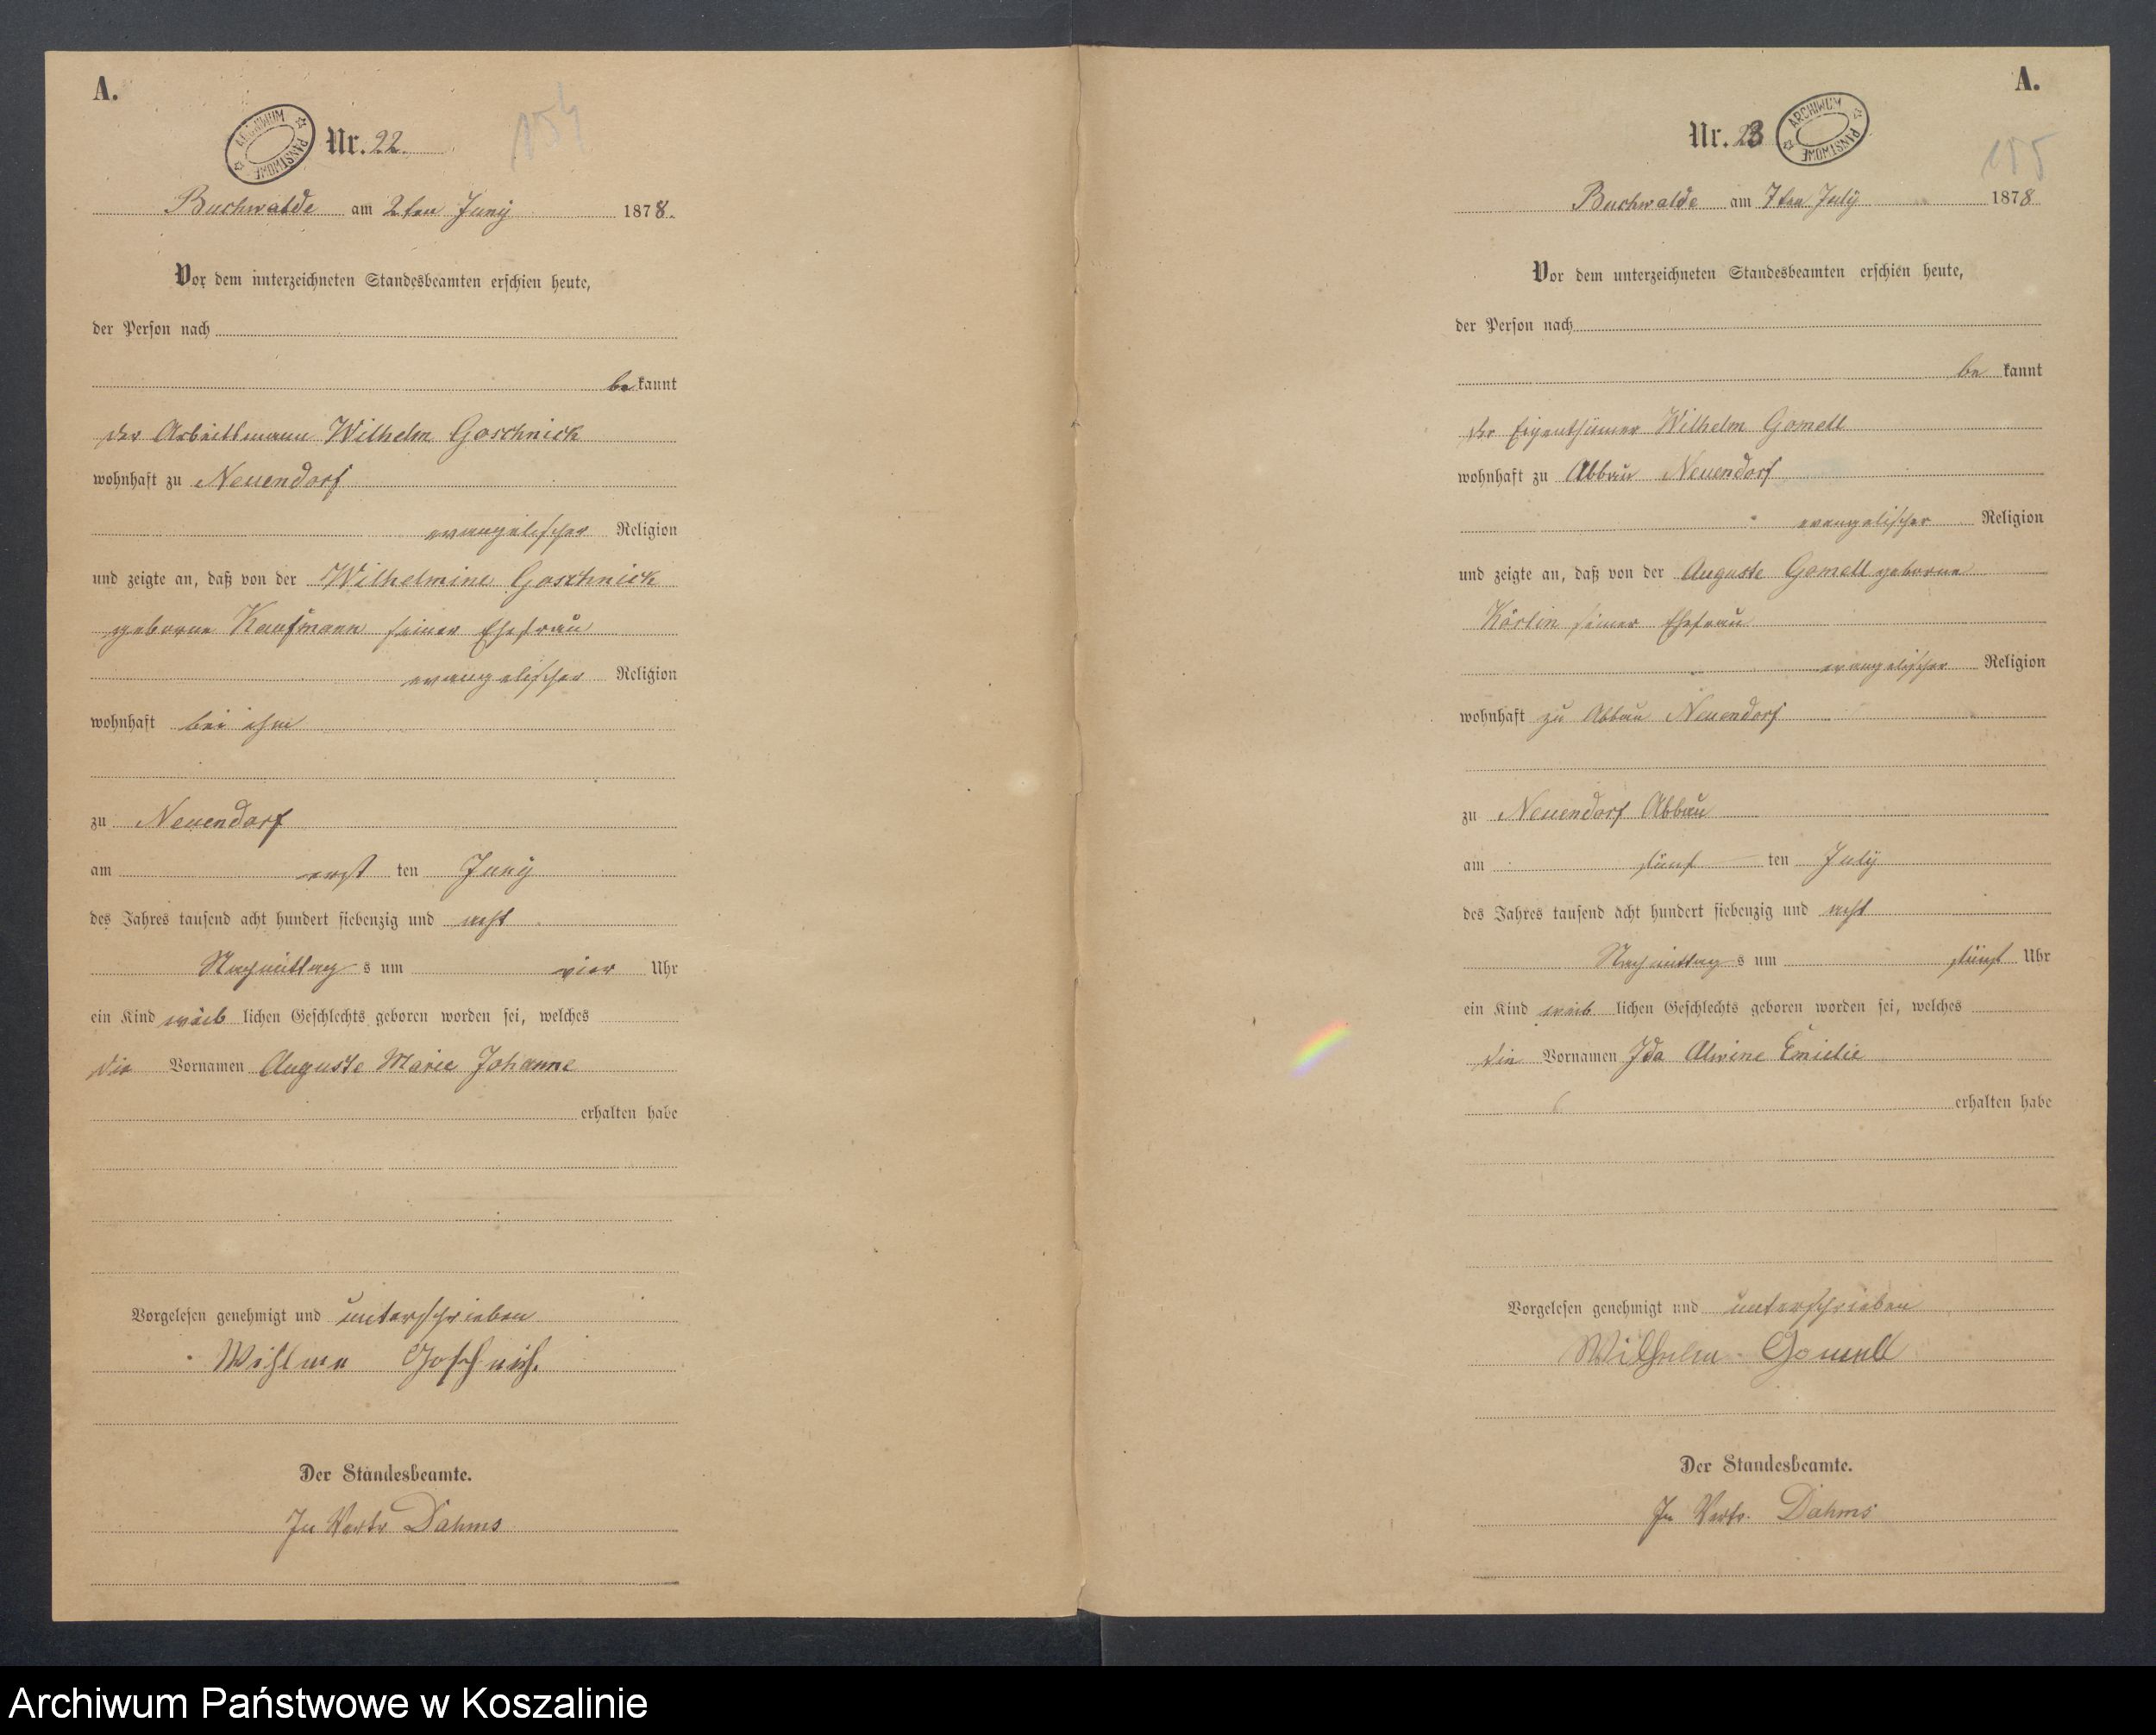 A.
ARCHIWUM PAŃSTWOWE
Nr. 22.
154
Buchwalde am 2ten Juny 1878.
Vor dem unterzeichneten Standesbeamten erschien heute,
der Person nach
be kannt
der Arbeitsmann Wilhelm Goschnick
wohnhaft zu Neuendorf
evangelischer Religion
und zeigte an, daß von der Wilhelmine Goschnick
geborne Kaufmann seiner Ehefrau
evangelischer Religion
wohnhaft bei ihm
zu Neuendorf
am erst ten Juny
des Jahres tausend acht hundert siebenzig und acht
Nachmittag s um vier Uhr
ein Kind weib lichen Geschlechts geboren worden sei, welches
die Vornamen Auguste Marie Johanne
erhalten habe
Vorgelesen genehmigt und unterschrieben
Goschnick.
Der Standesbeamte.
In Vertr Dahms
A.
Nr. 23
ARCHIWUM PAŃSTWOWE
155
Buchwalde am 7ten July 1878
Vor dem unterzeichneten Standesbeamten erschien heute,
der Person nach
be kannt
der Eigenthümer Wilhelm Gomell
wohnhaft zu Abbau Neuendorf
evangelischer Religion
und zeigte an, daß von der Auguste Gomell geborne
Körlin seiner Ehefrau
evangelischer Religion
wohnhaft zu Abbau Neuendorf
zu Neuendorf Abbau
am fünf ten July
des Jahres tausend acht hundert siebenzig und acht
Nachmittag s um fünf Uhr
ein Kind weib lichen Geschlechts geboren worden sei, welches
die Vornamen Ida Alwine Emielie
erhalten habe
Vorgelesen genehmigt und unterschrieben
Wilhelm Gomell
Der Standesbeamte.
In Vertr. Dahms
Archiwum Państwowe w Koszalinie